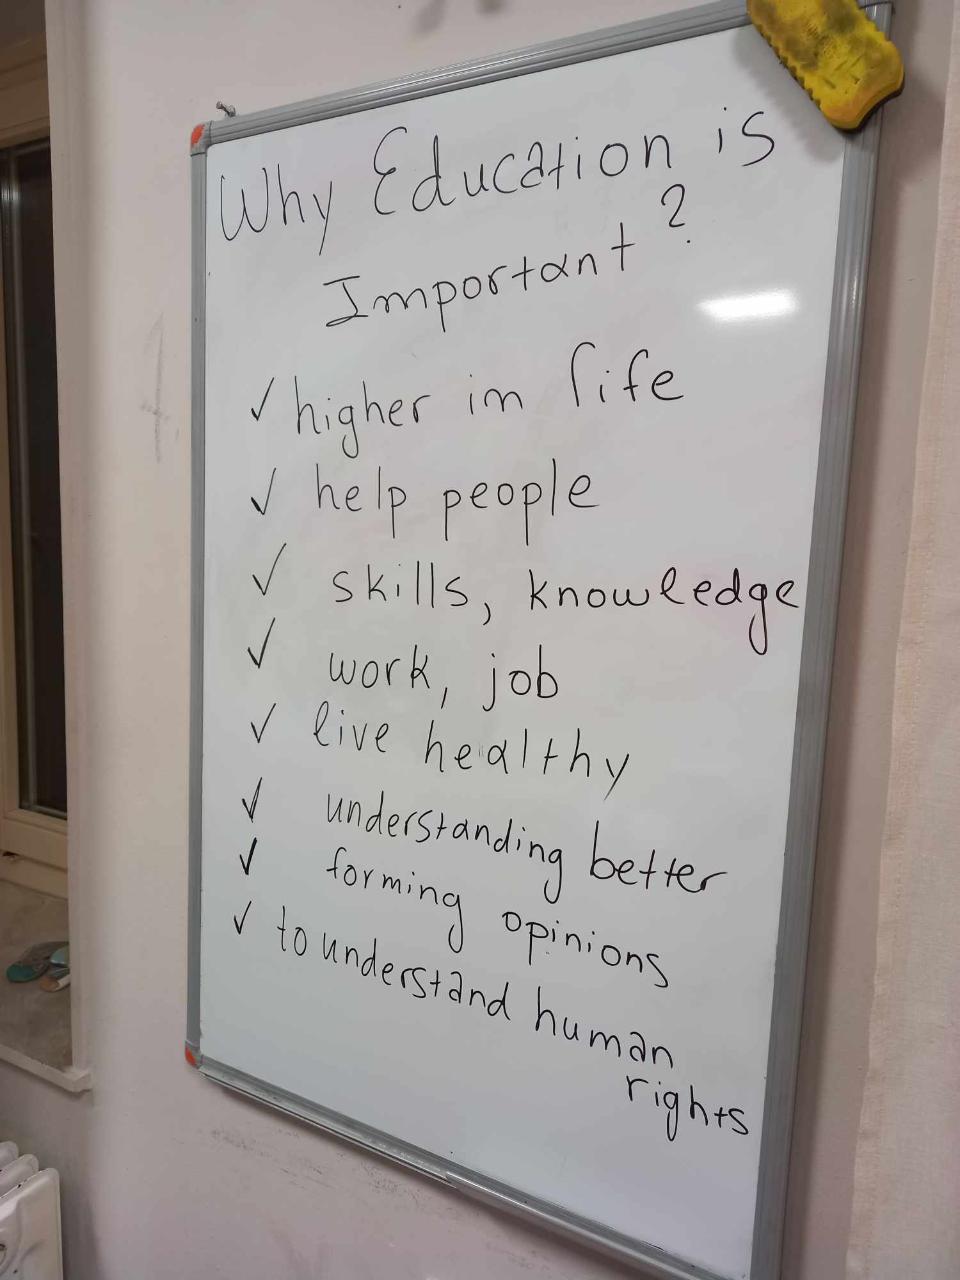 Why Education is
Important?
✓ higher in life
✓ help people
✓ skills, knowledge
✓ work, job
✓ live healthy
✓ understanding better
✓ forming opinions
✓ to understand human
rights